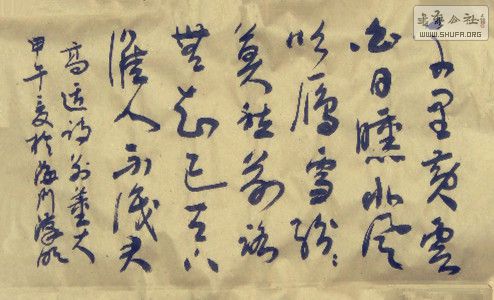 千里黄雲
白日曛北风
吹雁雪纷纷
莫愁前路
無知己天下
谁人不识君
高适诗别董大
甲午夏於海门
公社
WWW.SHUFA.ORG